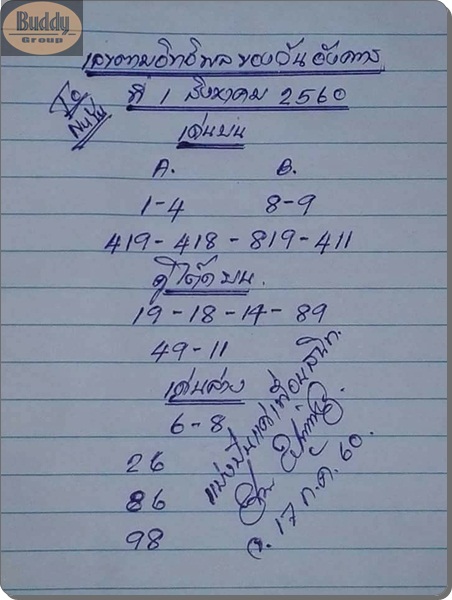 Buddy
Group
เลขตามอิทธิพลของวันอังคาร
ที่ 1 สิงหาคม 2560
To
เด่นบน
A. B.
1-4 8-9
419-418-819-411
คู่โต๊ดบน.
19-18-14-89
49-11
เด่นล่าง
6-8
26
86
98
แบ่งปันแด่เพื่อนสนิท.
จ. 17 ก.ค. 60.